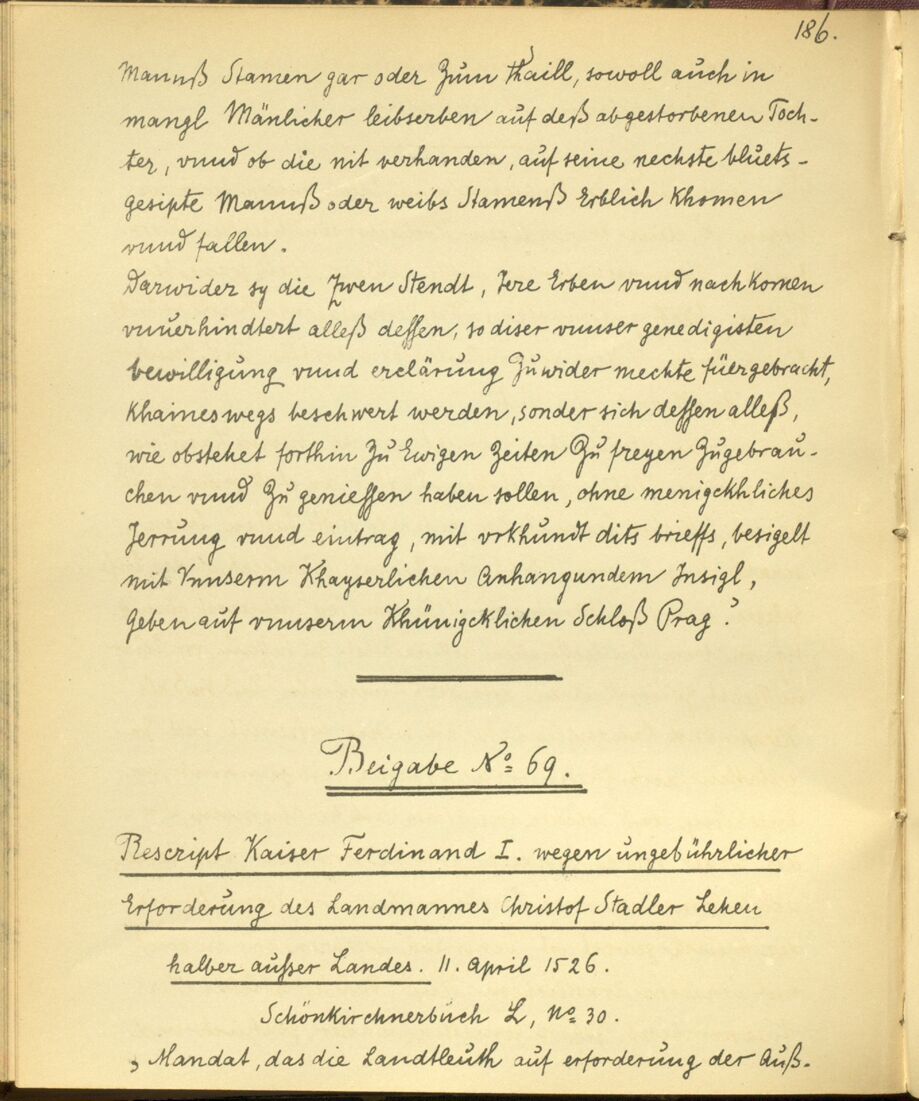 186.
Mannß Stamen gar oder Zum thaill, sowoll auch in
mangl Mänlicher leibserben auf deß abgestorbenen Toch-
ter, vnnd ob die nit verhanden, auf seine nechste bluets-
gesipte Mannß oder weibs Stamenß Erblich Khomen
vnnd fallen.
Darwider sy die Zwen Stendt, Jere Erben vnnd nachkomen
vnuerhindtert alleß dessen, so diser vnnser genedigisten
bewilligung vnnd erclärung Zuwider mechte füergebracht,
Khaineswegs beschwert werden, sonder sich dessen alleß,
wie obstehet forthin Zu Ewigen Zeiten Zu freyen Zugebrau-
chen vnnd Zu geniessen haben sollen, ohne menigckhliches
Jerrung vnnd eintrag, mit vrkhundt dits brieffs, besigelt
mit Vnnserm Khayserlichen Anhangundem Insigl,
Geben auf vnnserm Khünigcklichen Schloß Prag?
Beigabe No 69.
Rescript Kaiser Ferdinand I. wegen ungebührlicher
Erforderung des Landmannes Christof Stadler Lehen
halber ausser Landes. 11. April 1526.
Schönkirchnerbuch L, No 30.
, Mandat, das die Landtleuth auf erforderung der Auß-